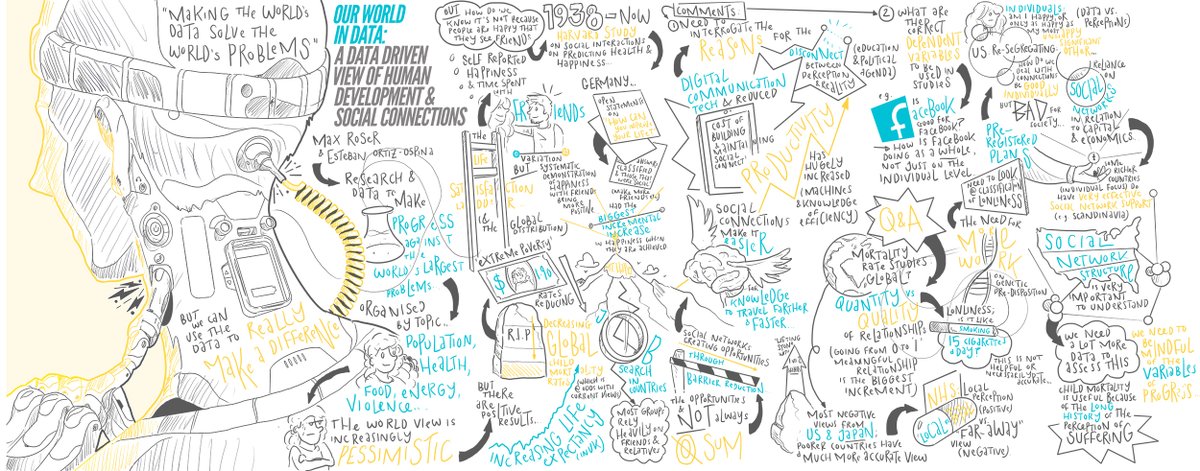 "MAKING THE WORLD'S
DATA SOLVE THE
WORLD'S PROBLEMS"
BUT WE CAN
USE THE
DATA TO
REALLY
MAKE A DIFFERENCE
OUR WORLD
IN DATA:
A DATA DRIVEN
VIEW OF HUMAN
DEVELOPMENT &
SOCIAL CONNECTIONS
MAX ROSER
& ESTEBAN ORTIZ-OSPINA
RESEARCH &
DATA TO
MAKE
PROGRESS
AGAINST
THE
WORLD'S LARGEST
PROBLEMS
ORGANISED
BY TOPIC...
POPULATION,
HEALTH,
FOOD, ENERGY,
VIOLENCE...
THE WORLD VIEW IS
INCREASINGLY
PESSIMISTIC
BUT HOW DO WE
KNOW IT'S NOT BECAUSE
PEOPLE ARE HAPPY THAT
THEY SEE FRIENDS
SELF REPORTED
HAPPINESS
& TIME SPENT
WITH
FRIENDS
VARIATION
BUT SYSTEMATIC
DEMONSTRATION
OF HAPPINESS
WITH FRIENDS
BEING
MORE
POSITIVE
THE
LIFE
SATISFACTION
LADDER
(& THE
GLOBAL
DISTRIBUTION)
EXTREME POVERTY
$ 1.90
RATES
REDUCING
R.I.P
DECREASING
GLOBAL
CHILD
MORTALITY
RATES
BUT
THERE
ARE
POSITIVE
RESULTS.
INCREASING LIFE
EXPECTANCY
(IN UK)
(WHICH IS
@ ODDS WITH
CURRENT VIEWS)
1938-NOW
HARVARD STUDY
ON SOCIAL INTERACTIONS
ON PREDICTING HEALTH &
HAPPINESS...
GERMANY...
OPEN
STATEMENTS
ON
HOW CAN
YOU IMPROVE
YOUR LIFE?
ANSWERS
CLASSIFIED
& THOSE THAT
WERE SOCIAL
(MAKE MORE
FRIENDS ETC)
HAD THE
BIGGEST
INCREMENTAL
INCREASE
IN HAPPINESS WHEN
THEY ARE ACHIEVED
JOB
SEARCH
IN COUNTRIES
MOST GROUPS
RELY
HEAVILY ON
FRIENDS &
RELATIVES
COMMENTS:
① NEED TO
INTERROGATE THE
REASONS FOR THE
DISCONNECT
BETWEEN
PERCEPTION
& REALITY
(EDUCATION
& POLITICAL
AGENDA)
DIGITAL
COMMUNICATION
TECH & REDUCED
COST OF
BUILDING
& MAINTAINING
SOCIAL
CONNECT
PRODUCTIVITY
HAS
HUGELY
INCREASED
(MACHINES
& KNOWLEDGE
OF
EFFICIENCY)
SOCIAL
CONNECTIONS
MAKE IT
EASIER
FOR
KNOWLEDGE
TO TRAVEL FARTHER
& FASTER...
SOCIAL NETWORKS
CREATING OPPORTUNITIES
THROUGH
BARRIER REDUCTION
THE OPPORTUNITIES
& NOT ALWAYS
② WHAT ARE
THE
CORRECT
DEPENDENT
VARIABLES
TO BE
USED IN
STUDIES
e.g.
IS
FACEBOOK
GOOD FOR
FACEBOOK?
HOW IS FACEBOOK
DOING AS A WHOLE,
NOT JUST ON THE
INDIVIDUAL LEVEL
INDIVIDUALS
AM I HAPPY, OR
ONLY AS HAPPY AS
MY MOST
UNHAPPY
SIGNIFICANT
OTHER...
(DATA VS.
PERCEPTIONS)
US RE-SEGREGATING
HOW DO WE
DEAL WITH
CONNECTIONS
BE GOOD
INDIVIDUALLY
BUT BAD FOR
SOCIETY...
RELIANCE
ON
SOCIAL
NETWORKS
IN RELATION
TO CAPITAL
& ECONOMICS.
PRE-
REGISTERED
PLANS
SOME
RICHER
COUNTRIES
(INDIVIDUAL FOCUS) DO
HAVE VERY EFFECTIVE
SOCIAL NETWORK SUPPORT
(e.g. SCANDINAVIA)
Q&A
MORTALITY
RATE STUDIES
GLOBAL?
QUANTITY VS
QUALITY
OF RELATIONSHIPS
(GOING FROM 0 TO 1
MEANINGFUL
RELATIONSHIP
IS THE BIGGEST
INCREMENT)
MOST NEGATIVE
VIEWS FROM
US & JAPAN:
POORER COUNTRIES HAVE
A MUCH MORE ACCURATE VIEW
NEED TO LOOK
@ CLASSIFICATION
OF LONLINESS
THE NEED FOR
MORE
WORK
ON
GENETIC
PRE-DISPOSITION
LONLINESS:
IS IT LIKE
SMOKING
15 CIGARETTES
A DAY?
THIS IS NOT
HELPFUL OR
NECESSARILY TRUE
ACCURATE...
NHS
LOCAL
PERCEPTION
(POSITIVE)
"LOCAL"
VS
"FAR-AWAY"
VIEW
(NEGATIVE)
SOCIAL
NETWORK
STRUCTURE
IS VERY
IMPORTANT
TO UNDERSTAND
WE NEED
A LOT MORE
DATA TO
ASSESS THIS
WE NEED TO
BE MINDFUL
OF THE
VARIABLES
OF PROGRESS...
CHILD MORTALITY
IS USEFUL BECAUSE
OF THE LONG
HISTORY OF THE
PERCEPTION OF
SUFFERING